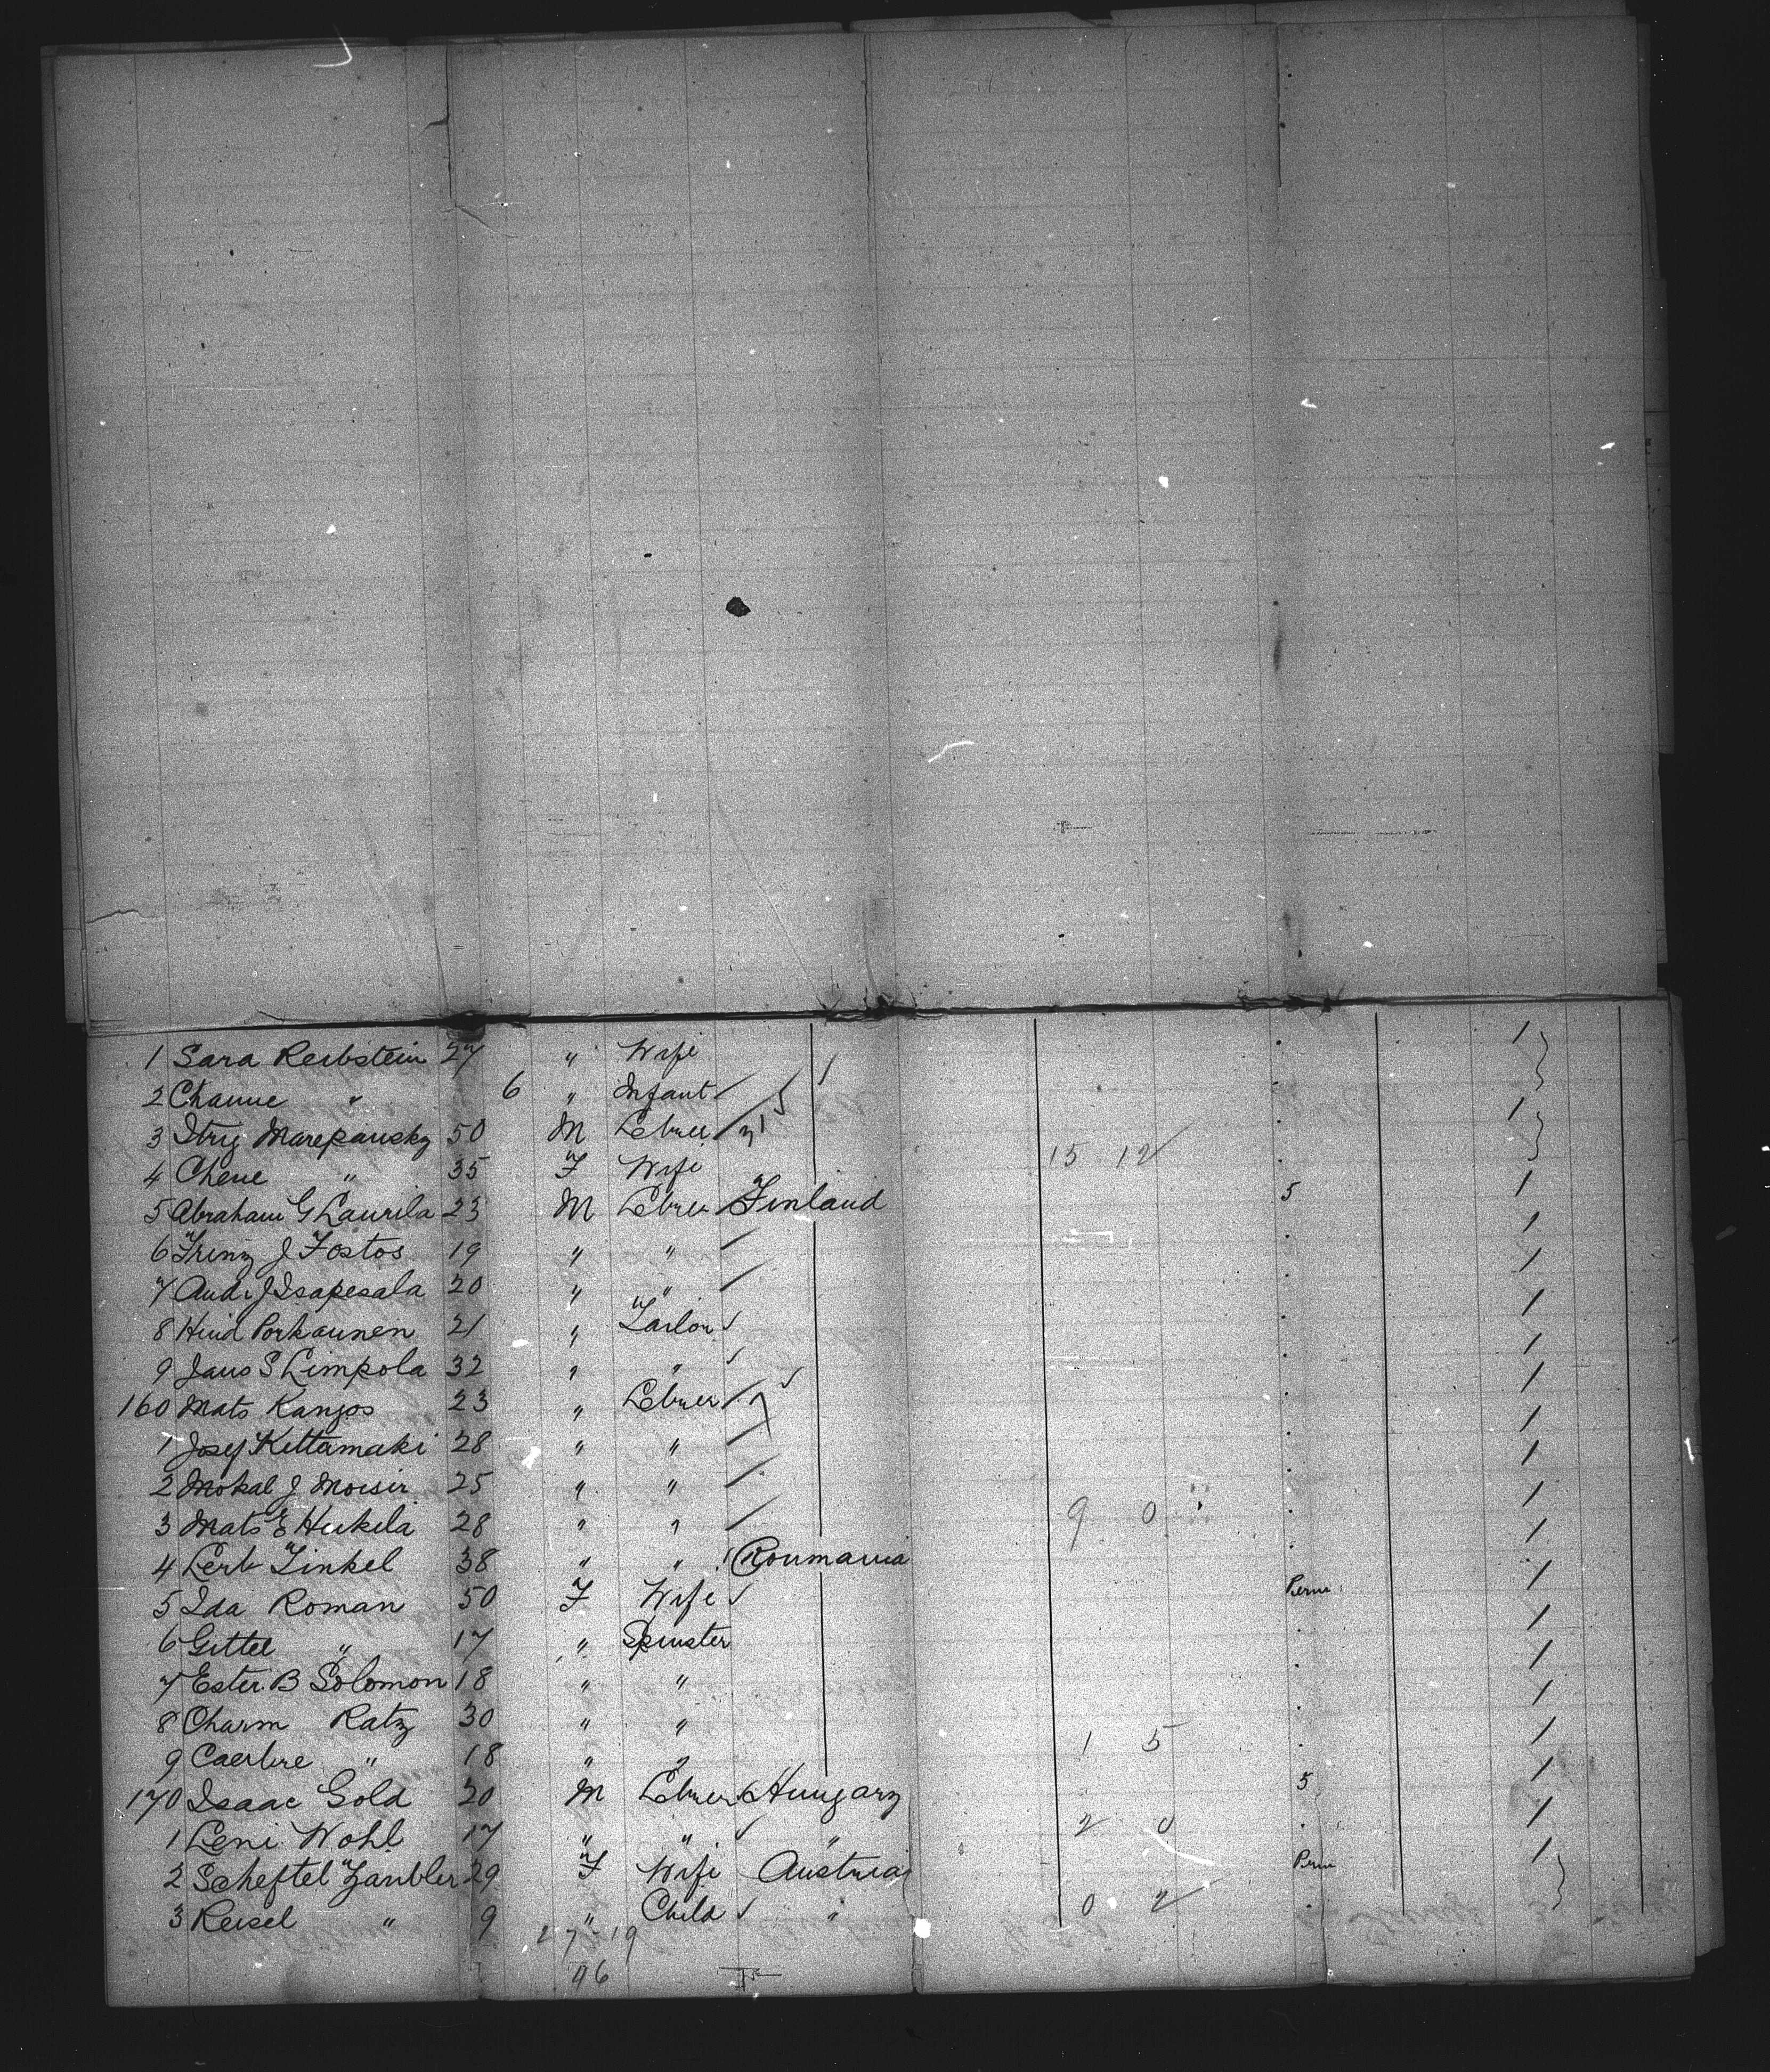 1 Sara Reibstein 27 " Wife 1
2 Channe " 6 " Infant
3 Itrig Marepansky 50 M Lebrer 1
4 Chene " 35 F Wife 15 12
5 Abraham G Laurila 23 M Lebrer Finland 5 1
6 Frinz J Fostos 19 " " 1
7 And. J Isapesala 20 " " 1
8 Hind Porkaunen 21 " Tailor 1
9 Jano S Limpola 32 " " 1
160 Mats Kangos 23 " Lebrer 1
1 Josef Kittamaki 28 " " 1
2 Mokal J Moisir 25 " " 1
3 Mats E Heikila 28 " " 9 0 1
4 Leib Finkel 38 " " Roumania 1
5 Ida Roman 50 F Wife 1
6 Gittel " 17 " Spinster 1
7 Ester B Solomon 18 " " 1
8 Charm Ratz 30 " " 1
9 Caerbre " 18 " " 1 5 1
170 Isaac Gold 20 M Lebrer Hungary 5 1
1 Leni Wohl 17 " " " 2 0 1
2 Scheftel Zanbler 29 F Wife Austria 1
3 Reisel " 9 " Child " 0 2
27-19